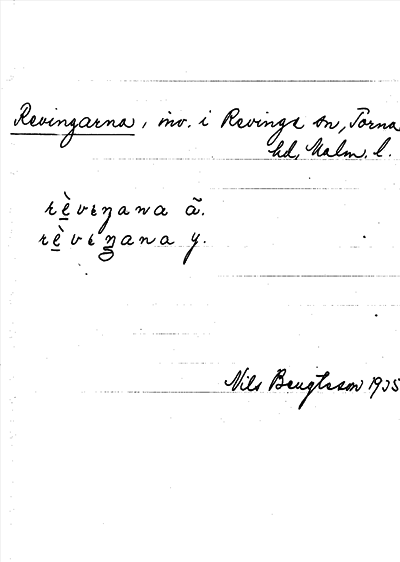 Revingarna, inv. i Revinge sn, Torna
hd, Malm. l.
rè̠vɩŋana ã.
rè̠vɩŋana y.
Nils Bengtsson 1935